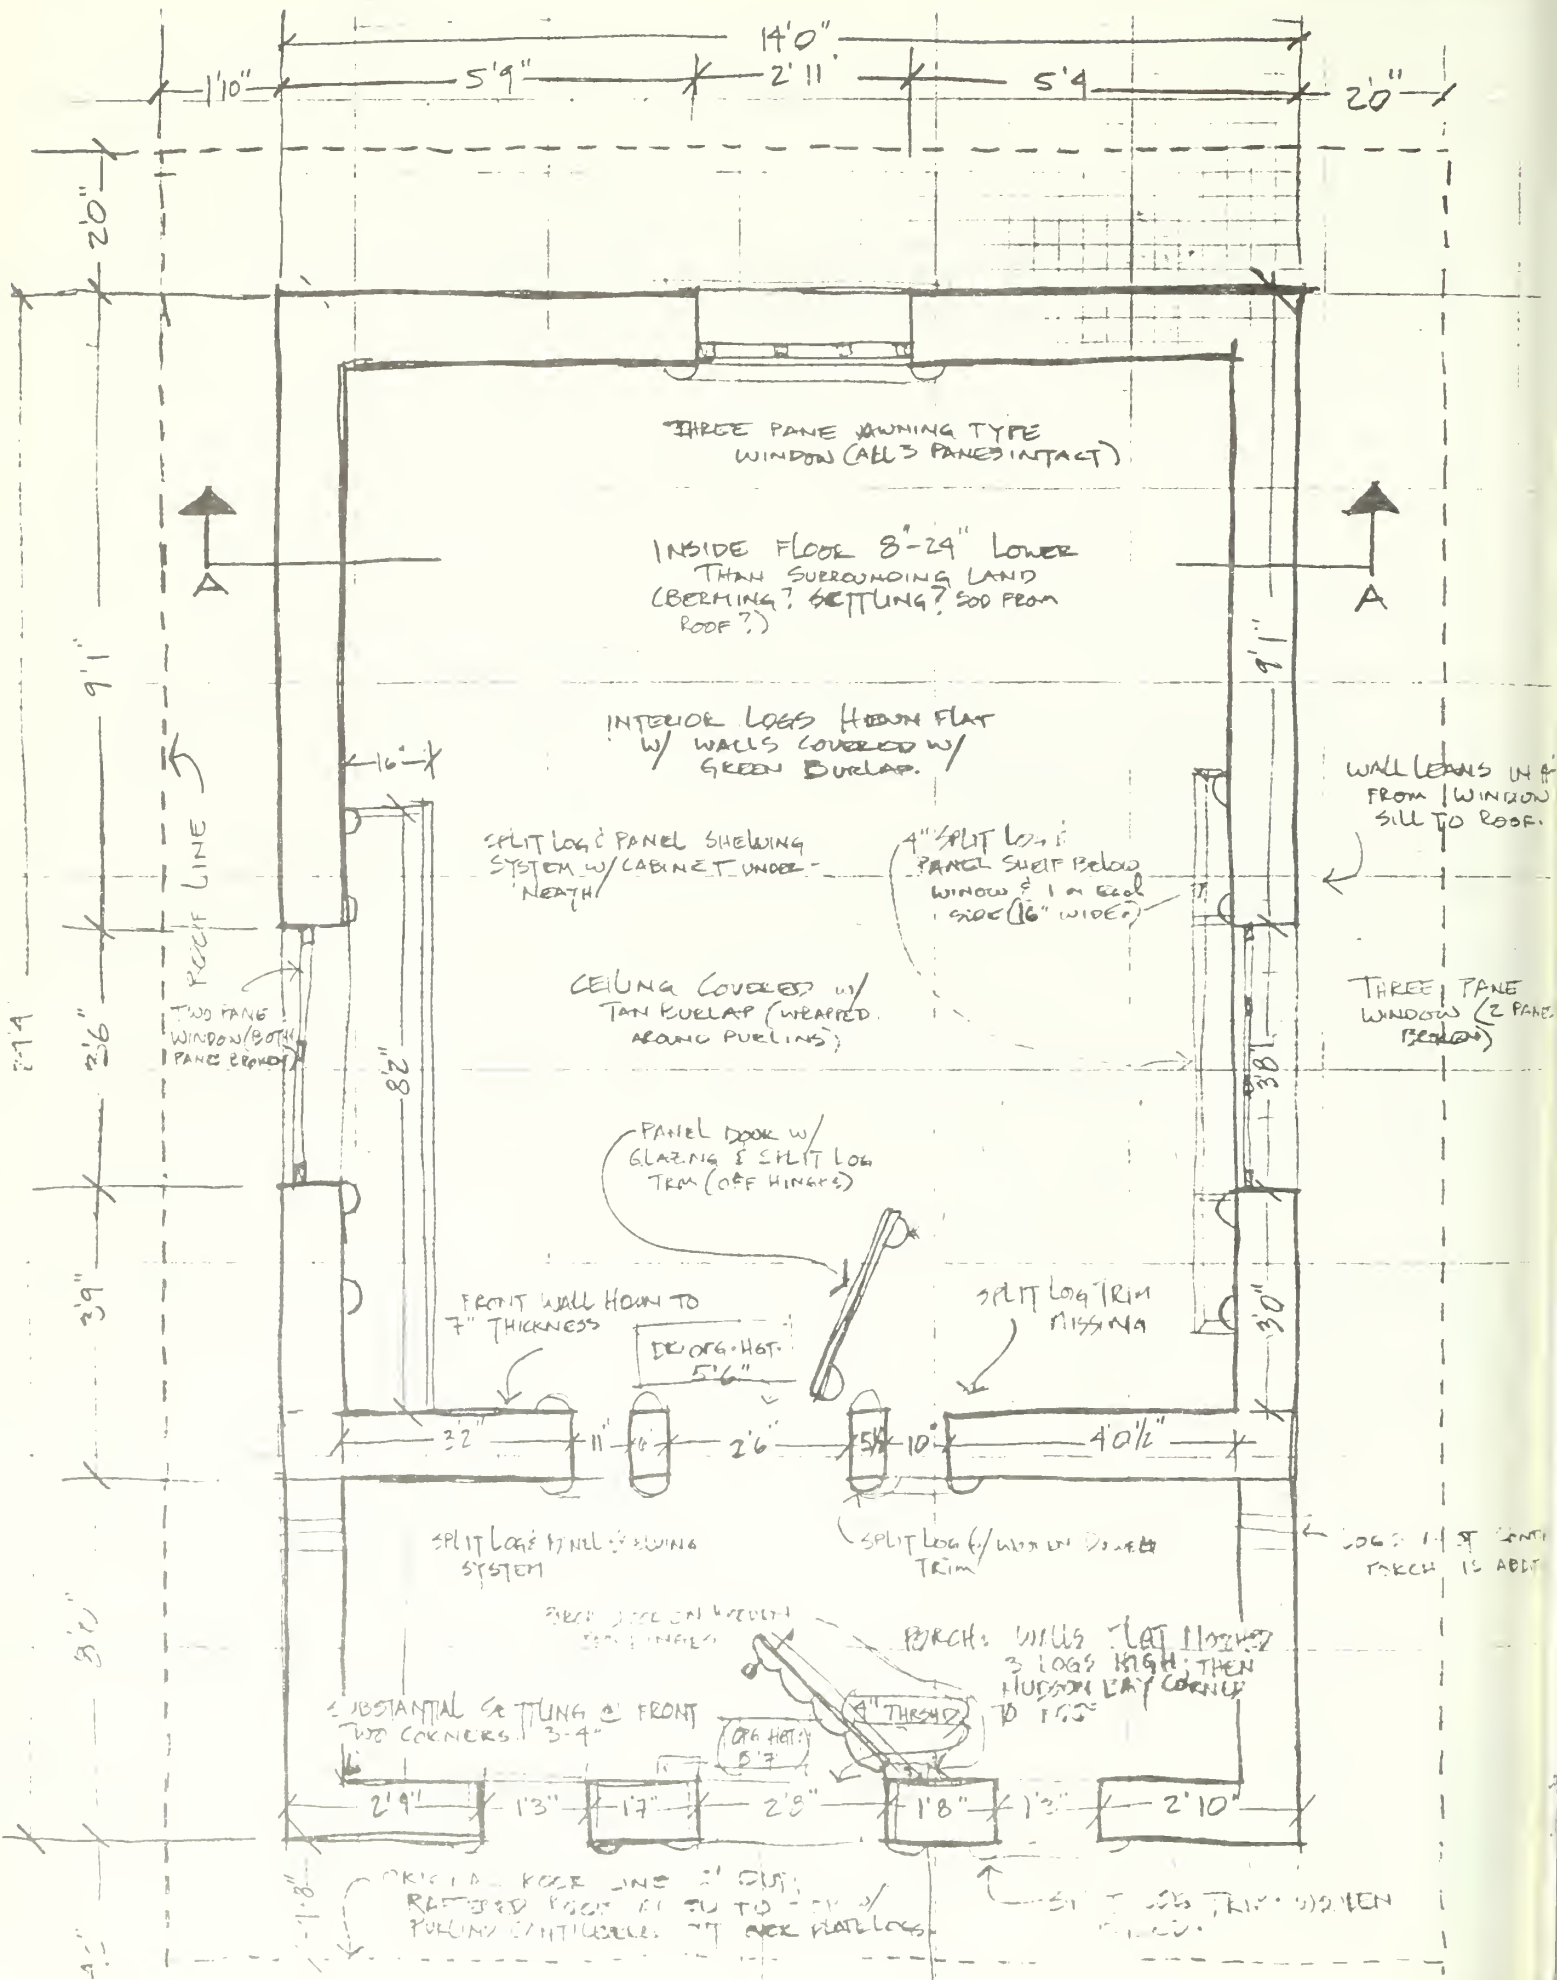 14'0"
1'10"
5'9"
2'11"
5'4
2'0"
2'0"
THREE PANE AWNING TYPE
WINDOW (ALL 3 PANES INTACT)
A
A
INSIDE FLOOR 8"-24" LOWER
THAN SURROUNDING LAND
(BERMING? SETTLING? SOD FROM
ROOF?)
9'1"
9'1"
INTERIOR LOGS HEWN FLAT
W/ WALLS COVERED W/
GREEN BURLAP.
16"
WALL LEANS IN
FROM WINDOW
SILL TO ROOF.
ROOF LINE
SPLIT LOG & PANEL SHELVING
SYSTEM W/ CABINET UNDER-
NEATH
4" SPLIT LOG &
PANEL SHELF BELOW
WINOW & 1 ON EACH
SIDE (16" WIDE)
TWO PANE
WINDOW (BOTH
PANE BROKEN)
3'6"
8'2"
CEILING COVERED W/
TAN BURLAP (WRAPPED
AROUND PURLINS)
THREE PANE
WINDOW (2 PANE
BROKEN)
3'8"
PANEL DOOR W/
GLAZING & SPLIT LOG
TRM (OFF HINGES)
3'9"
FRONT WALL HEWN TO
7" THICKNESS
DR OPG. HGT.
5'6"
SPLIT LOG TRIM
MISSING
3'0"
3'2"
11"
6"
2'6"
5½
10"
4'0½"
SPLIT LOG & PANEL SHELVING
SYSTEM
SPLIT LOG W/ WOVEN
TRIM
LOGS
PORCH IS
PORCH: WALLS FLAT NOTCHED
3 LOGS HIGH; THEN
HUDSON BAY CORNER
TO
SUBSTANTIAL SETTLING @ FRONT
TWO CORNERS 3-4"
OPG HGT:
5'7
4" THRSHD
2'9"
1'3"
1'7"
2'8"
1'8"
1'3"
2'10"
ROOF LINE
ROOF TO W/
PURLINS OVER PLATE LOGS.
TRIM